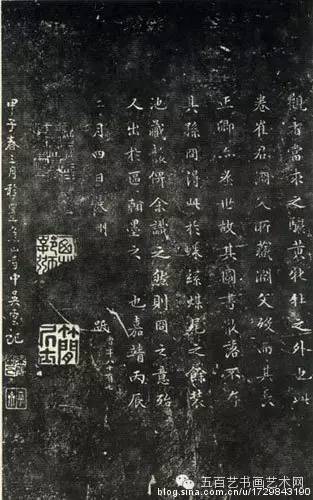 觀者當求之驪黃牝牡之外也此
卷崔君淵父所藏淵父歿而其長
正卿亦世故其圖書散落不存
其孫間得此於蛛絲煤尾之餘裝
池藏俾余識之然則間之意殆
出於區翰墨之也嘉靖丙辰
二月四日長洲
甲子春三月吳雲記
五百艺书画艺术网
blog.sina.com.cn/u/1729843190